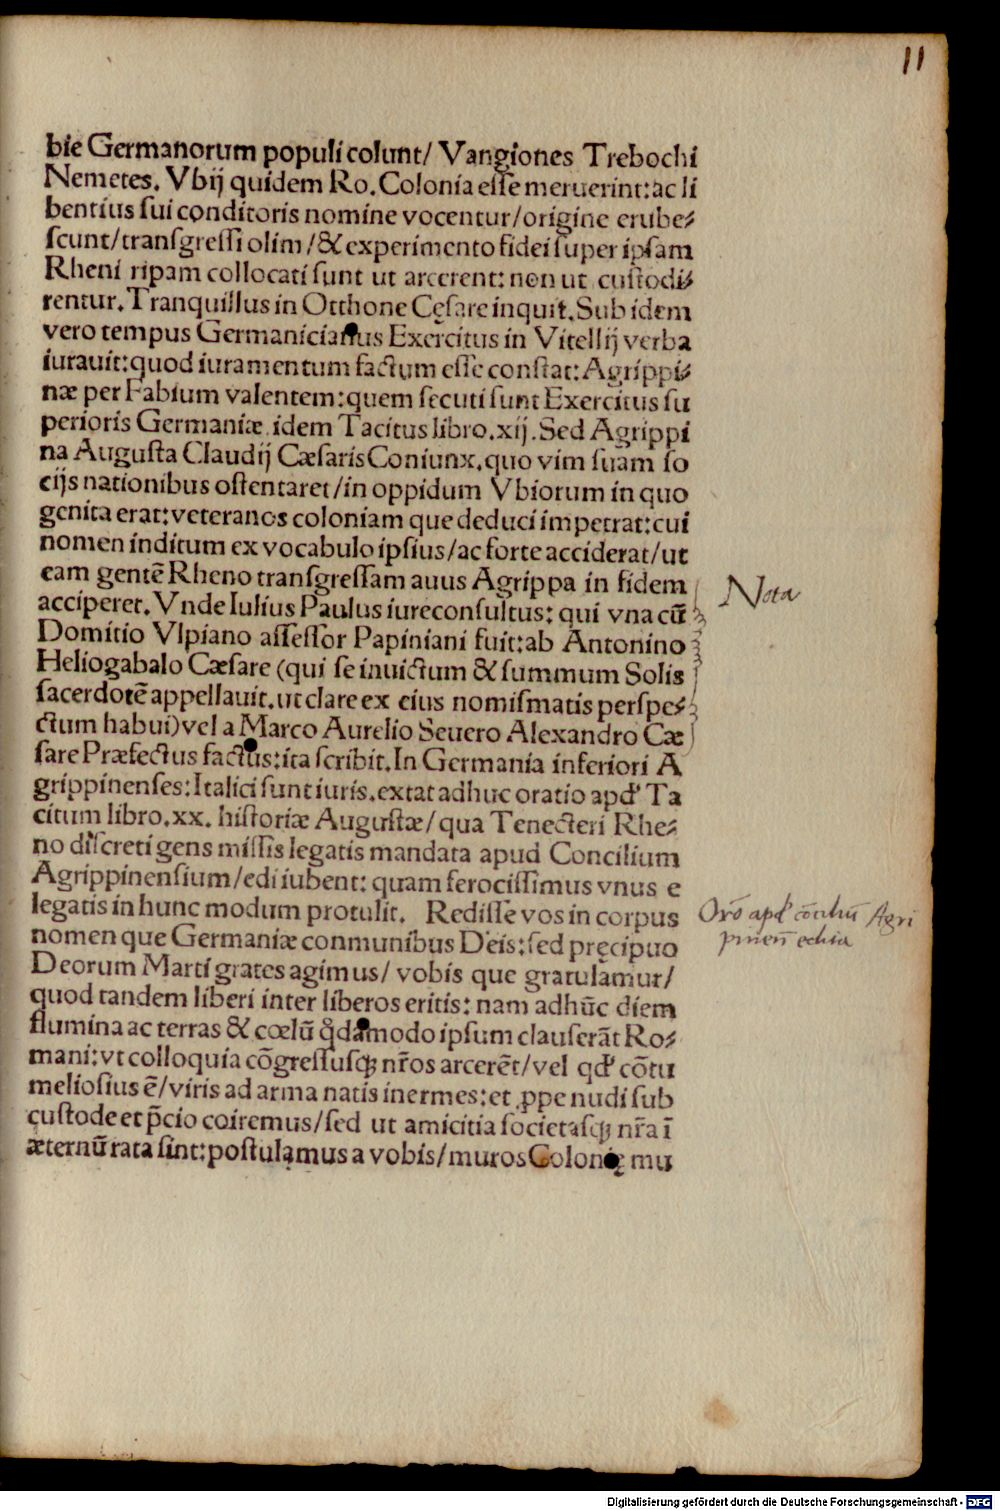 11
bie Germanorum populi colunt/ Vangiones Trebochi
Nemetes. Vbij quidem Ro. Colonia esse meruerint: ac li
bentius sui conditoris nomine vocentur/origine erube⸗
scunt/transgressi olim/& experimento fidei super ipsam
Rheni ripam collocati sunt ut arcerent: non ut custodi⸗
rentur. Tranquillus in Otthone Cęsare inquit. Sub idem
vero tempus Germanicianus Exercitus in Vitellij verba
iurauit: quod iuramentum factum esse constat: Agrippi⸗
næ per Fabium valentem: quem secuti sunt Exercitus su
perioris Germaniæ. idem Tacitus libro. xij. Sed Agrippi
na Augusta Claudij Cæsaris Coniunx. quo vim suam so
cijs nationibus ostentaret/in oppidum Vbiorum in quo
genita erat: veteranos coloniam que deduci impetrat: cui
nomen inditum ex vocabulo ipsius/ac forte acciderat/ut
eam gentē Rheno transgressam auus Agrippa in fidem
Nota
acciperet. Vnde Iulius Paulus iureconsultus: qui vna cū
Domitio Vlpiano assessor Papiniani fuit: ab Antonino
Heliogabalo Cæsare (qui se inuictum & summum Solis
sacerdotē appellauit. ut clare ex eius nomismatis perspe⸗
ctum habui) vel a Marco Aurelio Seuero Alexandro Cæ
sare Præfectus factus: ita scribit. In Germania inferiori A
grippinenses: Italici sunt iuris. extat adhuc oratio apd' Ta
citum libro. xx. historiæ Augustæ/ qua Tenecteri Rhe⸗
no discreti gens missis legatis mandata apud Concilium
Agrippinensium/edi iubent: quam ferocissimus vnus e
legatis in hunc modum protulit. Redisse vos in corpus
Orō apd' cōciliū Agri
nomen que Germaniæ conmunibus Deis: sed pręcipuo
Deorum Marti grates agimus/ vobis que gratulamur/
quod tandem liberi inter liberos eritis: nam adhūc diem
flumina ac terras & cœlū q̊damodo ipsum clauserāt Ro⸗
mani: vt colloquia cōgressusqꝫ nr̄os arcerēt/vel qd' cōtu
meliosius ē/viris ad arma natis inermes: et ꝓpe nudi sub
custode et p̄cio coiremus/sed ut amicitia societasqꝫ nr̄a ī
æternū rata sint: postulamus a vobis/muros Colonię mu
Digitalisierung gefördert durch die Deutsche Forschungsgemeinschaft - DFG